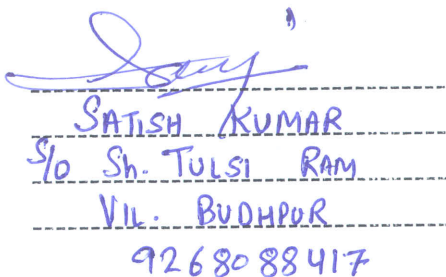 SATISH KUMAR
S/o Sh. TULSI RAM
VIL. BUDHPUR
9268088417